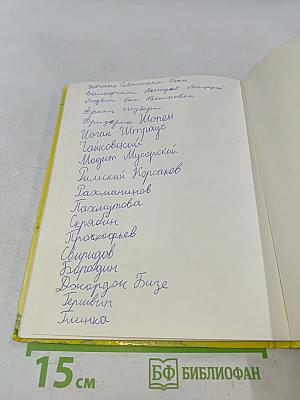 Иоганн Себастьян Бах
Вольфганг Амадей Моцарт
Людвиг ван Бетховен
Франц Шуберт
Фридерик Шопен
Иоган Штраус
Чайковский
Модест Мусоргский
Римский Корсаков
Рахманинов
Пахмутова
Скрябин
Прокофьев
Свиридов
Бородин
Джордж Бизе
Гершвин
Глинка
15 см
БФ БИБЛИОФАН